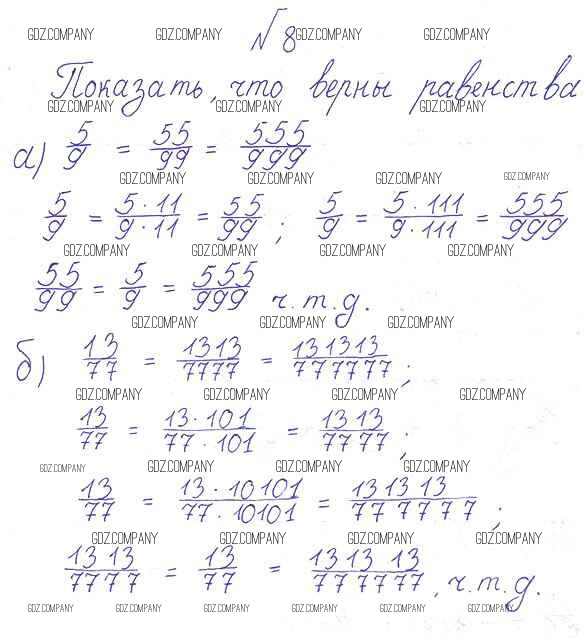 GDZ.COMPANY GDZ.COMPANY GDZ.COMPANY GDZ.COMPANY
№ 8
Показать, что верны равенства
GDZ.COMPANY GDZ.COMPANY GDZ.COMPANY
а) 5/9 = 55/99 = 555/999
GDZ.COMPANY GDZ.COMPANY GDZ.COMPANY GDZ.COMPANY
5/9 = 5·11/9·11 = 55/99; 5/9 = 5·111/9·111 = 555/999
GDZ.COMPANY GDZ.COMPANY GDZ.COMPANY GDZ.COMPANY
55/99 = 5/9 = 555/999 ч.т.д.
GDZ.COMPANY GDZ.COMPANY GDZ.COMPANY
б) 13/77 = 1313/7777 = 131313/777777;
GDZ.COMPANY GDZ.COMPANY GDZ.COMPANY GDZ.COMPANY
13/77 = 13·101/77·101 = 1313/7777;
GDZ.COMPANY GDZ.COMPANY GDZ.COMPANY GDZ.COMPANY
13/77 = 13·10101/77·10101 = 131313/777777;
GDZ.COMPANY GDZ.COMPANY GDZ.COMPANY GDZ.COMPANY
1313/7777 = 13/77 = 131313/777777, ч.т.д.
GDZ.COMPANY GDZ.COMPANY GDZ.COMPANY GDZ.COMPANY GDZ.COMPANY GDZ.COMPANY